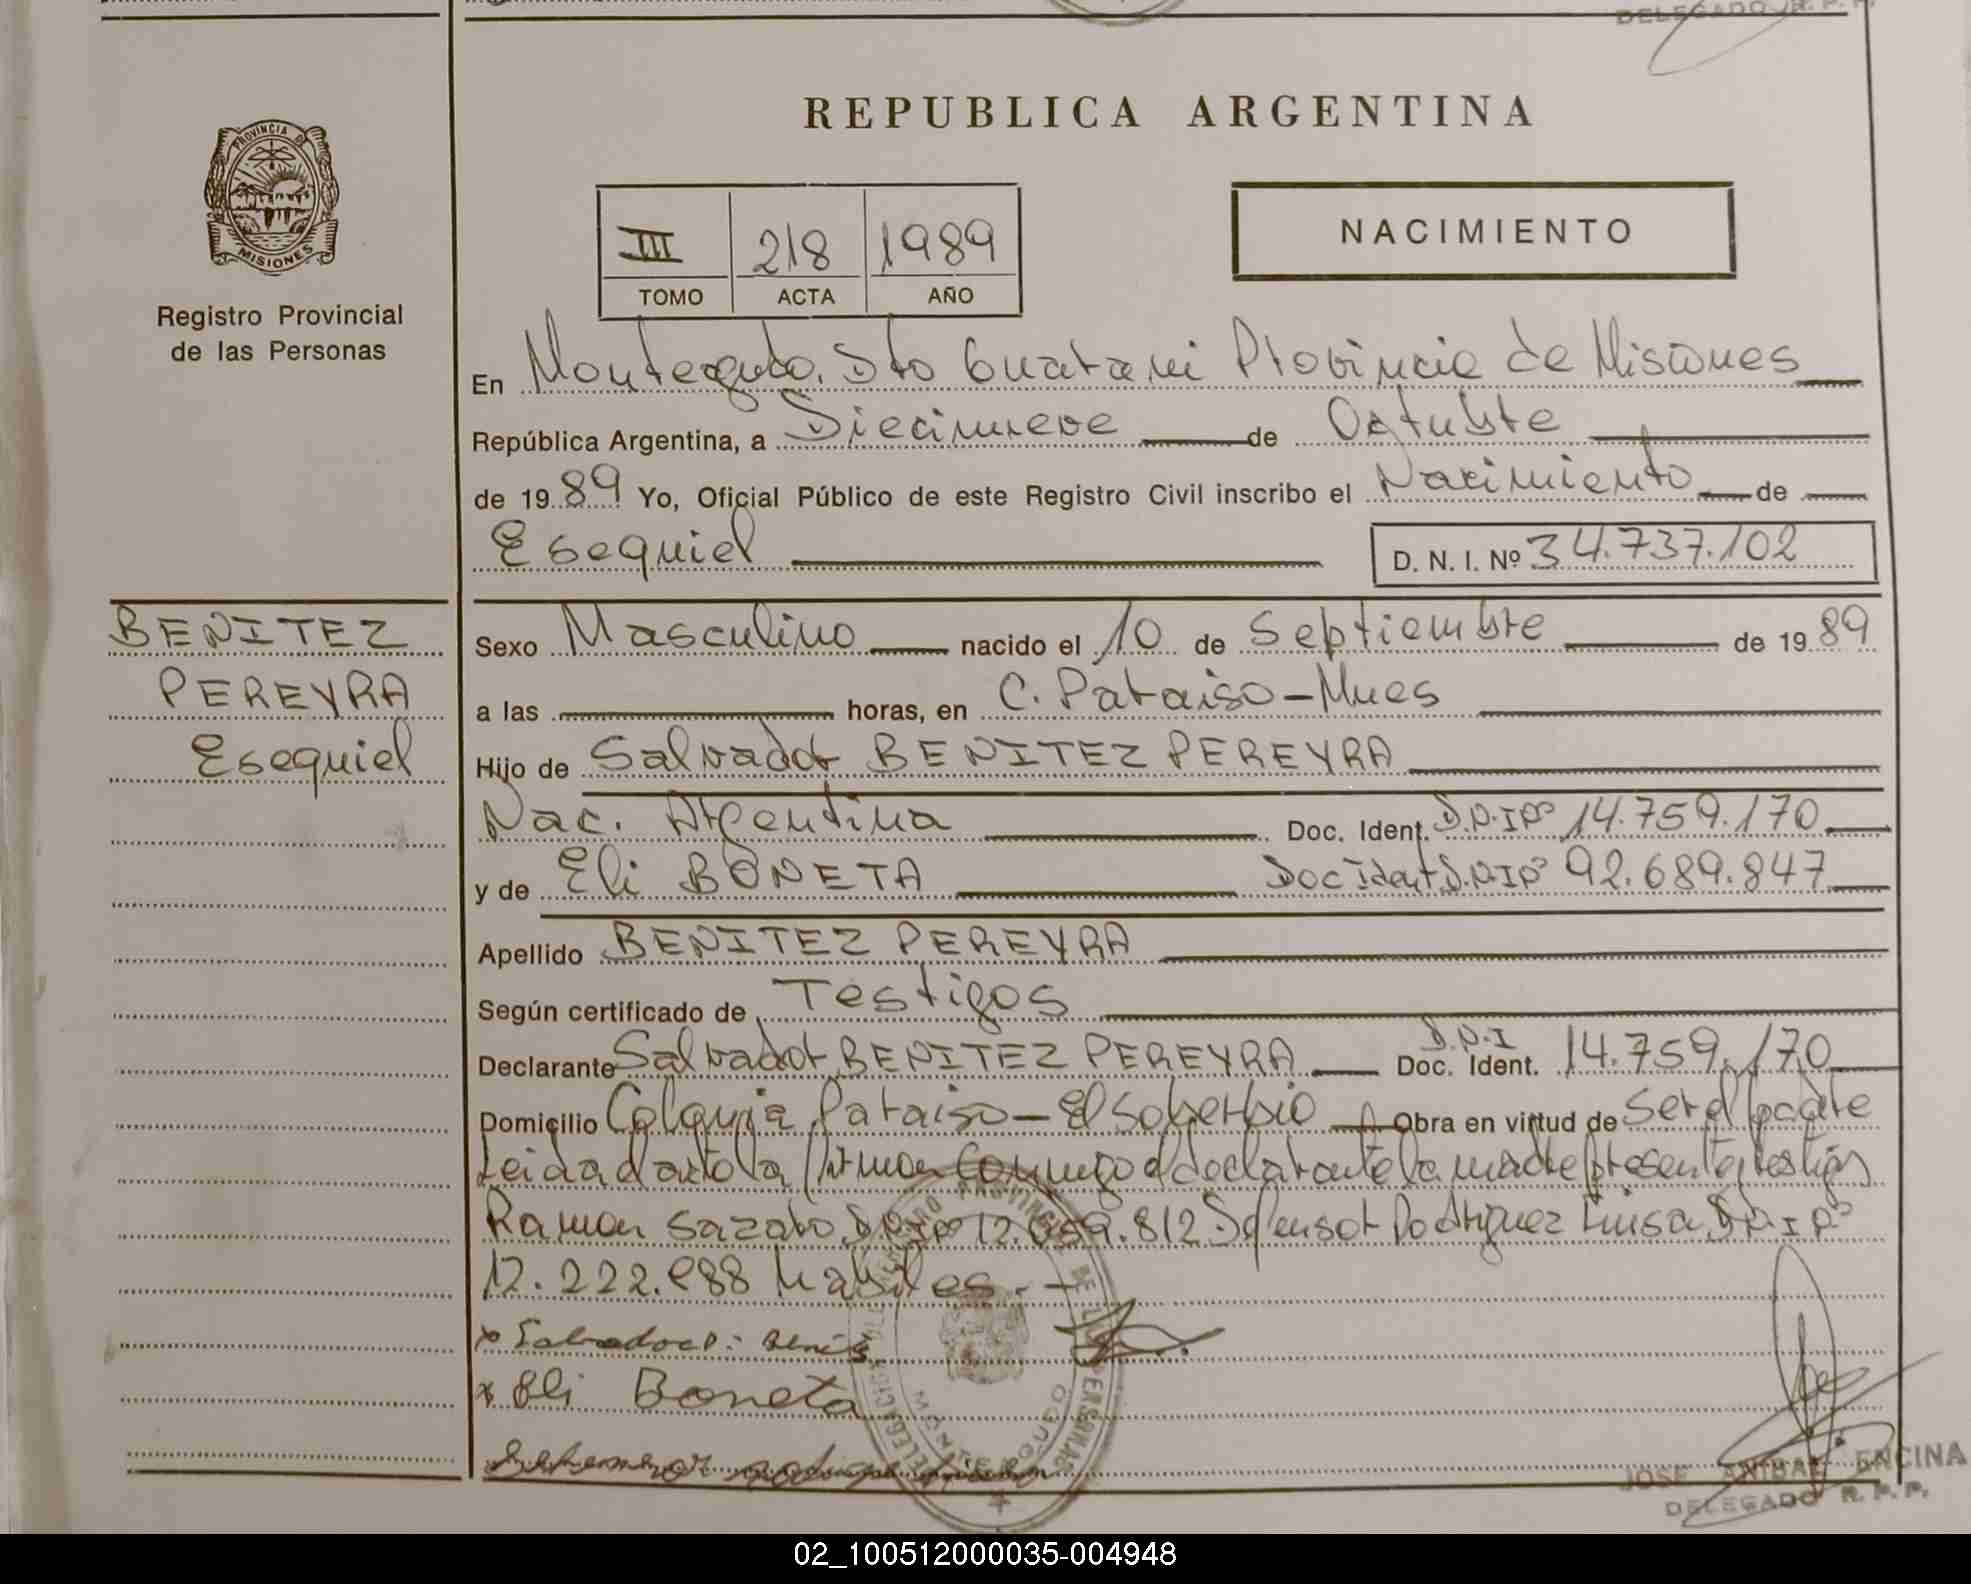 DELEGADO R. P. P.
PROVINCIA DE
MISIONES
Registro Provincial
de las Personas
REPUBLICA ARGENTINA
III 218 1989
TOMO ACTA AÑO
NACIMIENTO
En Monteagudo. Dto Guarani Provincia de Misiones
República Argentina, a Diecinueve de Octubre
de 1989 Yo, Oficial Público de este Registro Civil inscribo el Nacimiento de
Esequiel D. N. I. Nº 34.737.102
BENITEZ
PEREYRA
Esequiel
Sexo Masculino nacido el 10 de Septiembre de 1989
a las horas, en C. Paraiso - Mnes
Hijo de Salvador BENITEZ PEREYRA
Nac. Argentina Doc. Ident. D.N.I Nº 14.759.170
y de Eli BONETA Doc Ident D.N.I Nº 92.689.847
Apellido BENITEZ PEREYRA
Según certificado de Testigos
Declarante Salvador BENITEZ PEREYRA Doc. Ident. D.N.I 14.759.170
Domicilio Colonia Paraiso - El Soberbio Obra en virtud de ser el padre
Leida el acta la firman conmigo el declarante la madre presente, testigos
Ramon D.N.I Nº Rodriguez Luisa D.N.I Nº
12.222. habiles.-
x Salvador P.
x Eli Boneta
REGISTRO PROVINCIAL DE LAS PERSONAS
DELEGACION
MONTEAGUDO
JOSE ANIBAL ENCINA
DELEGADO R. P. P.
02_100512000035-004948